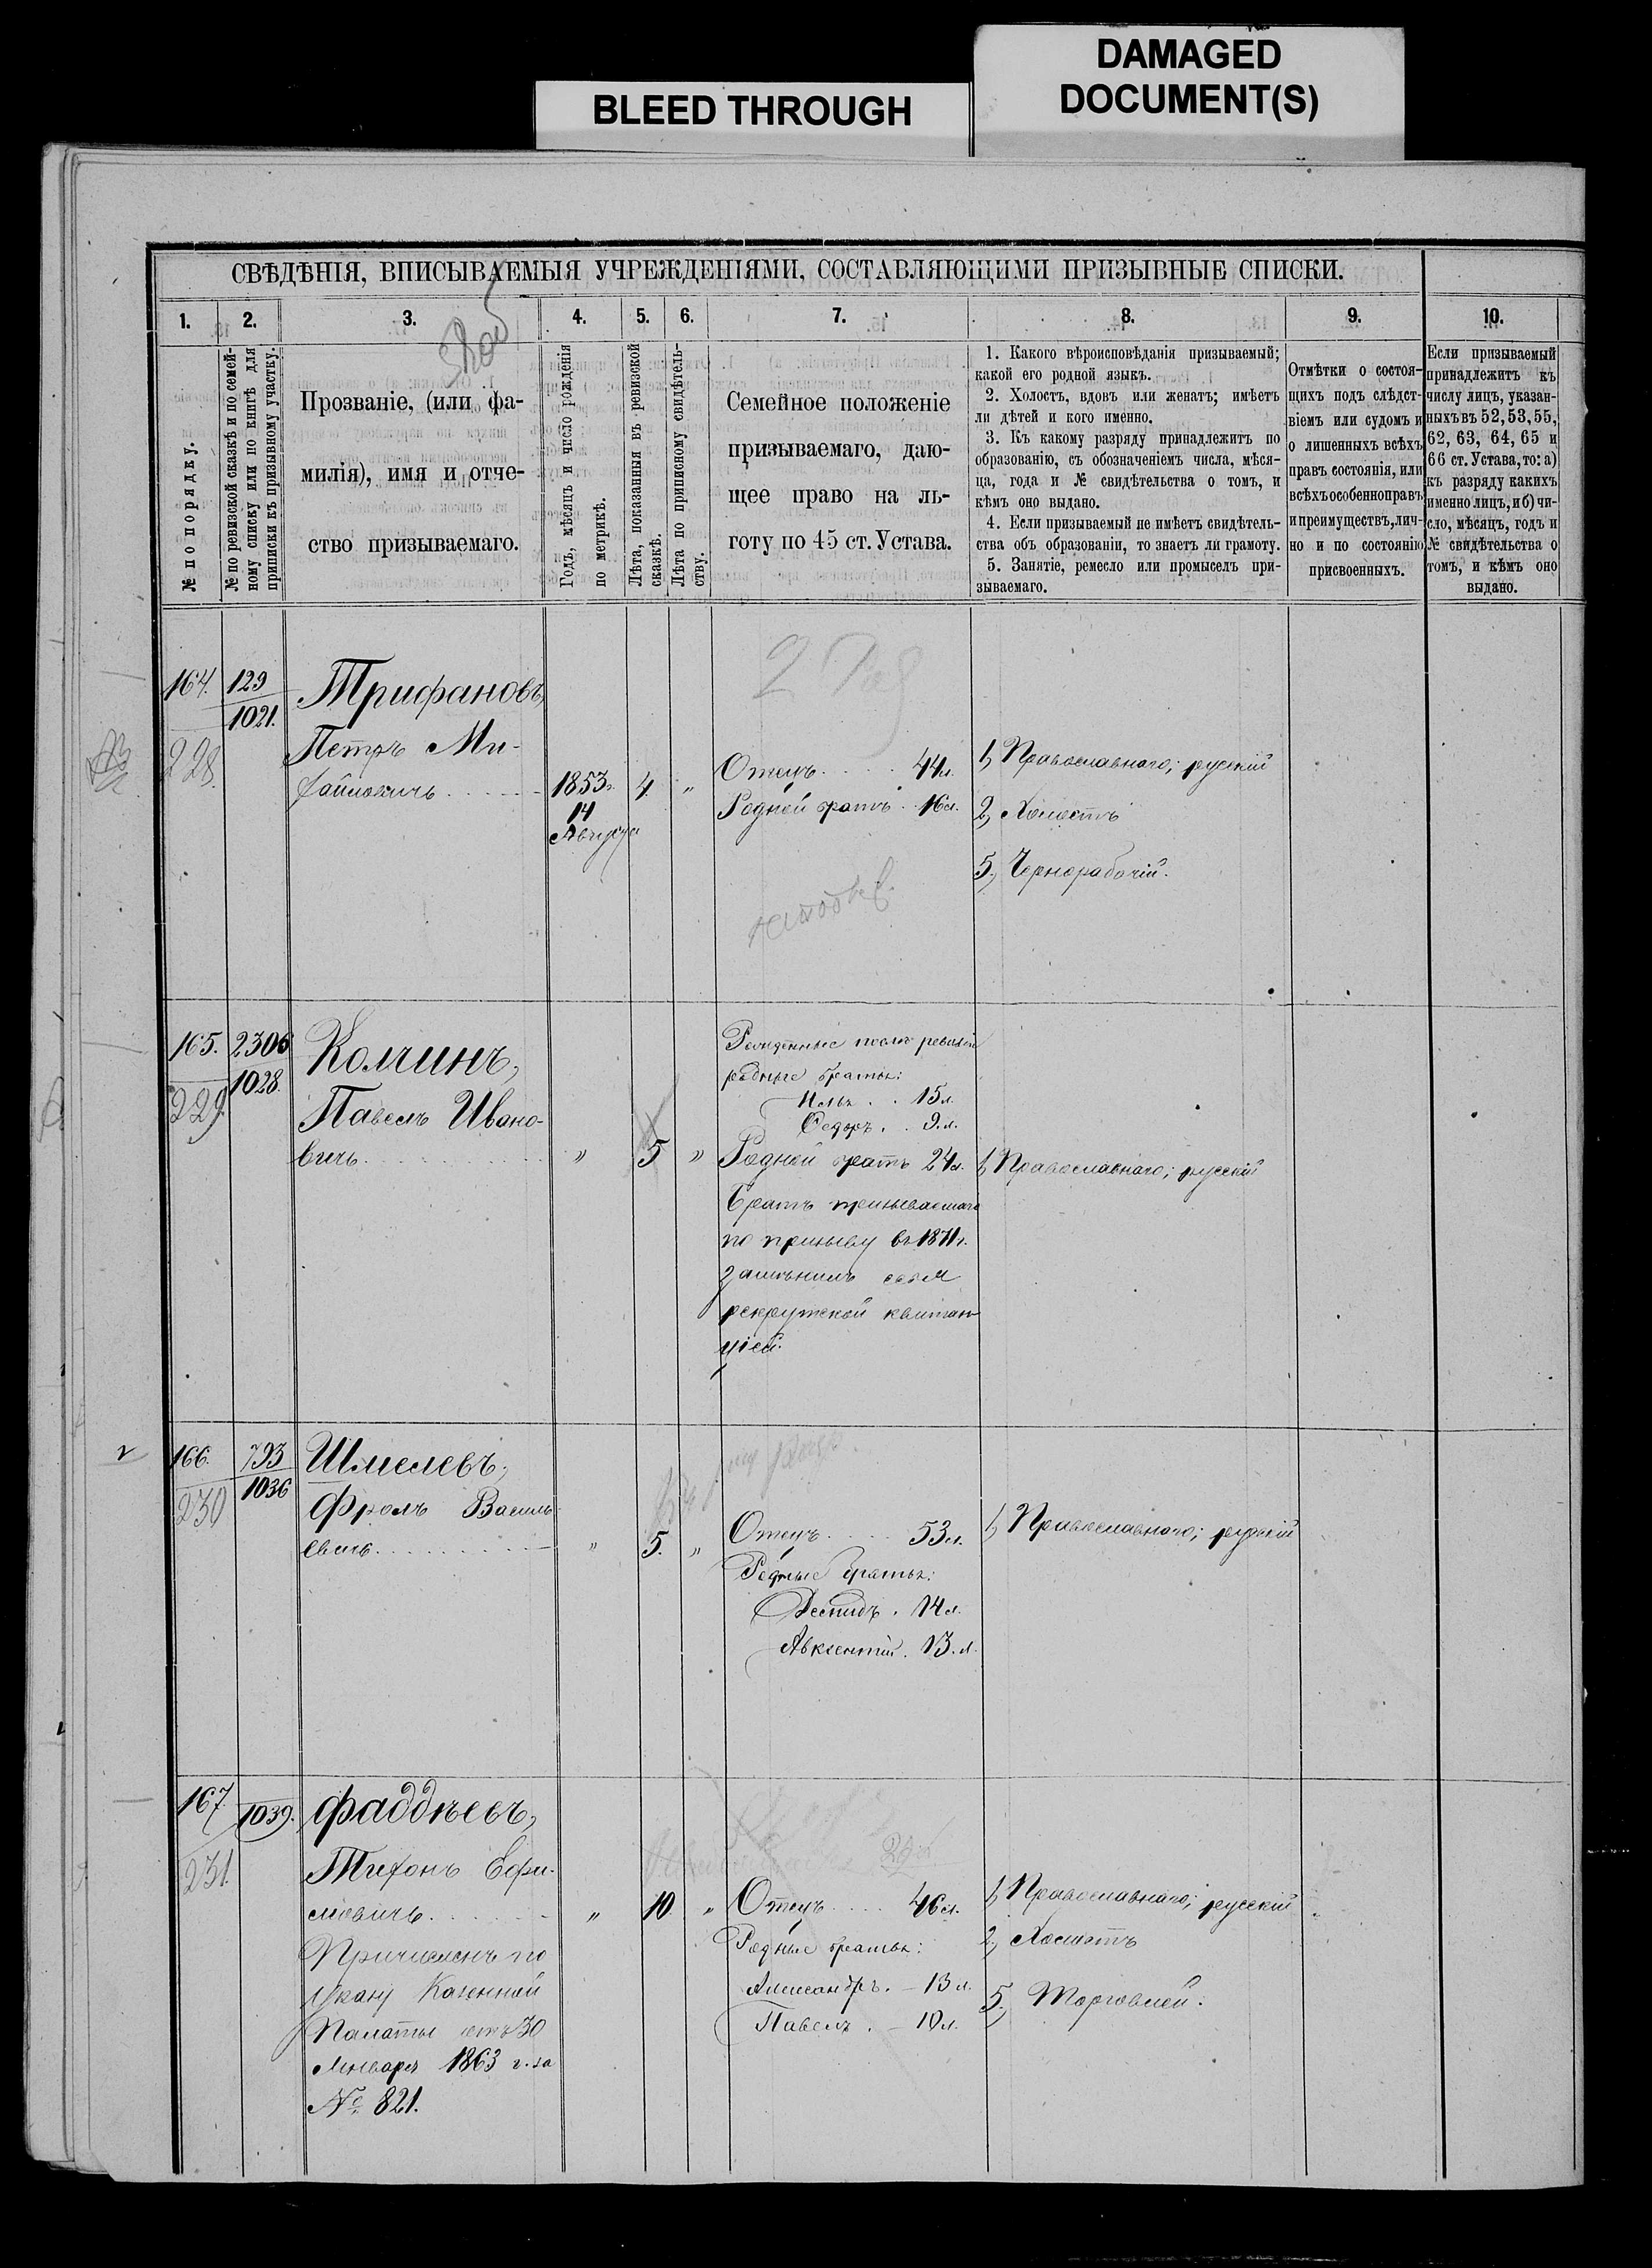 DAMAGED
DOCUMENT(S)
BLEED THROUGH
СВѢДѢНІЯ, ВПИСЫВАЕМЫЯ УЧРЕЖДЕНІЯМИ, СОСТАВЛЯЮЩИМИ ПРИЗЫВНЫЕ СПИСКИ.
1.
2.
3.
4.
5.
6.
7.
8.
9.
10.
№ по порядку.
№ по ревизской сказкѣ и по семей-
ному списку или по книгѣ для
приписки къ призывному участку.
Прозваніе, (или фа-
милія), имя и отче-
ство призываемаго.
Годъ, мѣсяцъ и число рожденія
по метрикѣ.
Лѣта, показанныя въ ревизской
сказкѣ.
Лѣта по приписному свидѣтель-
ству.
Семейное положеніе
призываемаго, даю-
щее право на ль-
готу по 45 ст. Устава.
1. Какого вѣроисповѣданія призываемый;
какой его родной языкъ.
2. Холостъ, вдовъ или женатъ; имѣетъ
ли дѣтей и кого именно.
3. Къ какому разряду принадлежитъ по
образованію, съ обозначеніемъ числа, мѣся-
ца, года и № свидѣтельства о томъ, и
кѣмъ оно выдано.
4. Если призываемый не имѣетъ свидѣтель-
ства объ образованіи, то знаетъ ли грамоту.
5. Занятіе, ремесло или промыселъ при-
зываемаго.
Отмѣтки о состоя-
щихъ подъ слѣдст-
віемъ или судомъ и
о лишенныхъ всѣхъ
правъ состоянія, или
всѣхъ особенно правъ
и преимуществъ, лич-
но и по состоянію
присвоенныхъ.
Если призываемый
принадлежитъ къ
числу лицъ, указан-
ныхъ въ 52, 53, 55,
62, 63, 64, 65 и
66 ст. Устава, то: а)
къ разряду какихъ
именно лицъ, и б) чи-
сло, мѣсяцъ, годъ и
№ свидѣтельства о
томъ, и кѣмъ оно
выдано.
164.
228
129
1021.
Трифановъ,
Петръ Ми-
хайловичъ
1853 г.
14
Августа
4.
"
Отецъ 44 л.
Родной братъ 16 л.
1, Православнаго; русскій
2, Холостъ
5, Чернорабочій.
165.
229.
2306
1028.
Комчинъ,
Павелъ Ивано-
вичъ
"
5
"
Рожденные послѣ ревизіи
родные братья:
Илья 15 л.
Ѳедоръ 9 л.
Родной братъ 24 л.
Братъ призываемаго
по призыву въ 1871 г.
замѣнилъ себя
рекрутской квитан-
ціей.
1, Православнаго; русскій
166.
230
793
1036
Шмелевъ,
Фролъ Василь-
евичъ
"
5.
"
Отецъ 53 л.
Родные братья:
Леонидъ 14 л.
Авксентій 13 л.
1, Православнаго; русскій
167.
231.
1039.
Фаддѣевъ,
Тихонъ Ефи-
мовичъ
Причисленъ по
указу Казенной
Палаты отъ 30
Января 1863 г. за
№ 821.
"
10
"
Отецъ 46 л.
Родные братья:
Александръ 13 л.
Павелъ 10 л.
1, Православнаго; русскій
2, Холостъ
5, Торговлей.